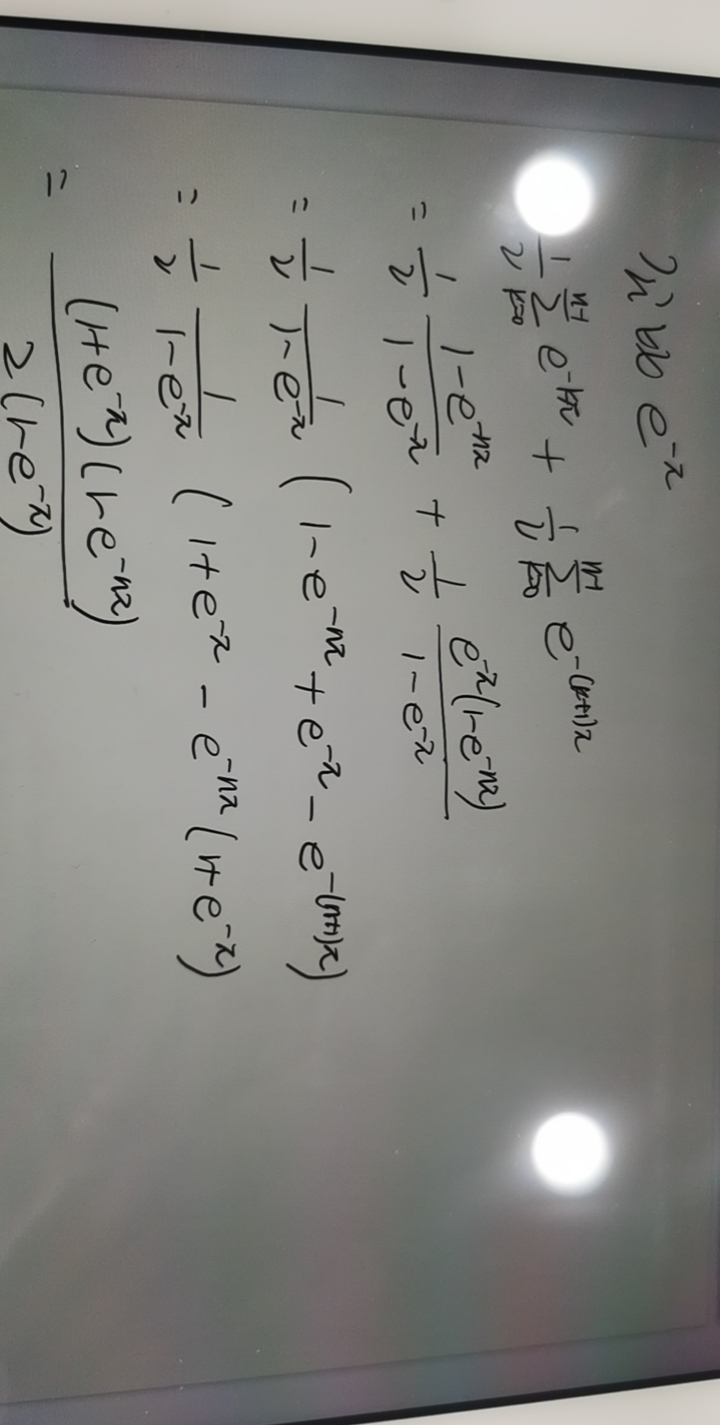 公比 e^{-x}
\frac{1}{2} \sum_{k=0}^{n-1} e^{-kx} + \frac{1}{2} \sum_{k=0}^{n-1} e^{-(k+1)x}
= \frac{1}{2} \frac{1-e^{-nx}}{1-e^{-x}} + \frac{1}{2} \frac{e^{-x}(1-e^{-nx})}{1-e^{-x}}
= \frac{1}{2} \frac{1}{1-e^{-x}} (1-e^{-nx} + e^{-x} - e^{-(n+1)x})
= \frac{1}{2} \frac{1}{1-e^{-x}} (1+e^{-x} - e^{-nx}(1+e^{-x})
= \frac{(1+e^{-x})(1-e^{-nx})}{2(1-e^{-x})}